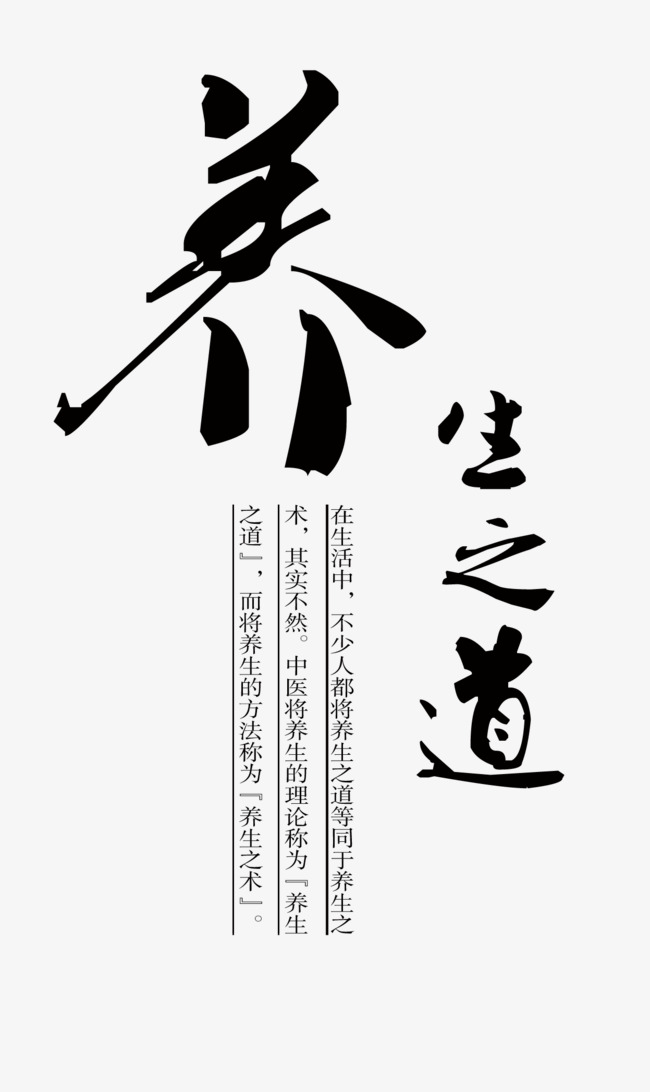 养生之道
在生活中，不少人都将养生之道等同于养生之
术，其实不然。中医将养生的理论称为『养生
之道』，而将养生的方法称为『养生之术』。